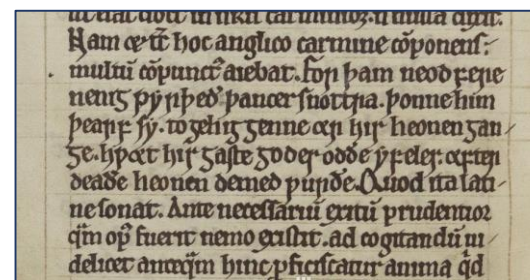 Nam et t̄t hoc anglico carmine cōponens:
multū cōpunct᾽ aiebat. Fori þam neod fere
nenig þẏriþeð þancer snottra. þonne him
þearf sẏ. to gehig genne ær hir heonen gan
ge. hƿæt hir gaste godes oððe ẏfeles. æfter
deaðe heonen demed ƿurðe. Quod ita lati
ne sonat. Ante necessariū exitū prudentior
qm̄ op᾽ fuerit nemo existit. ad cogitandū ui
delicet anteqm̄ hinc ꝓficiscatur anima qd